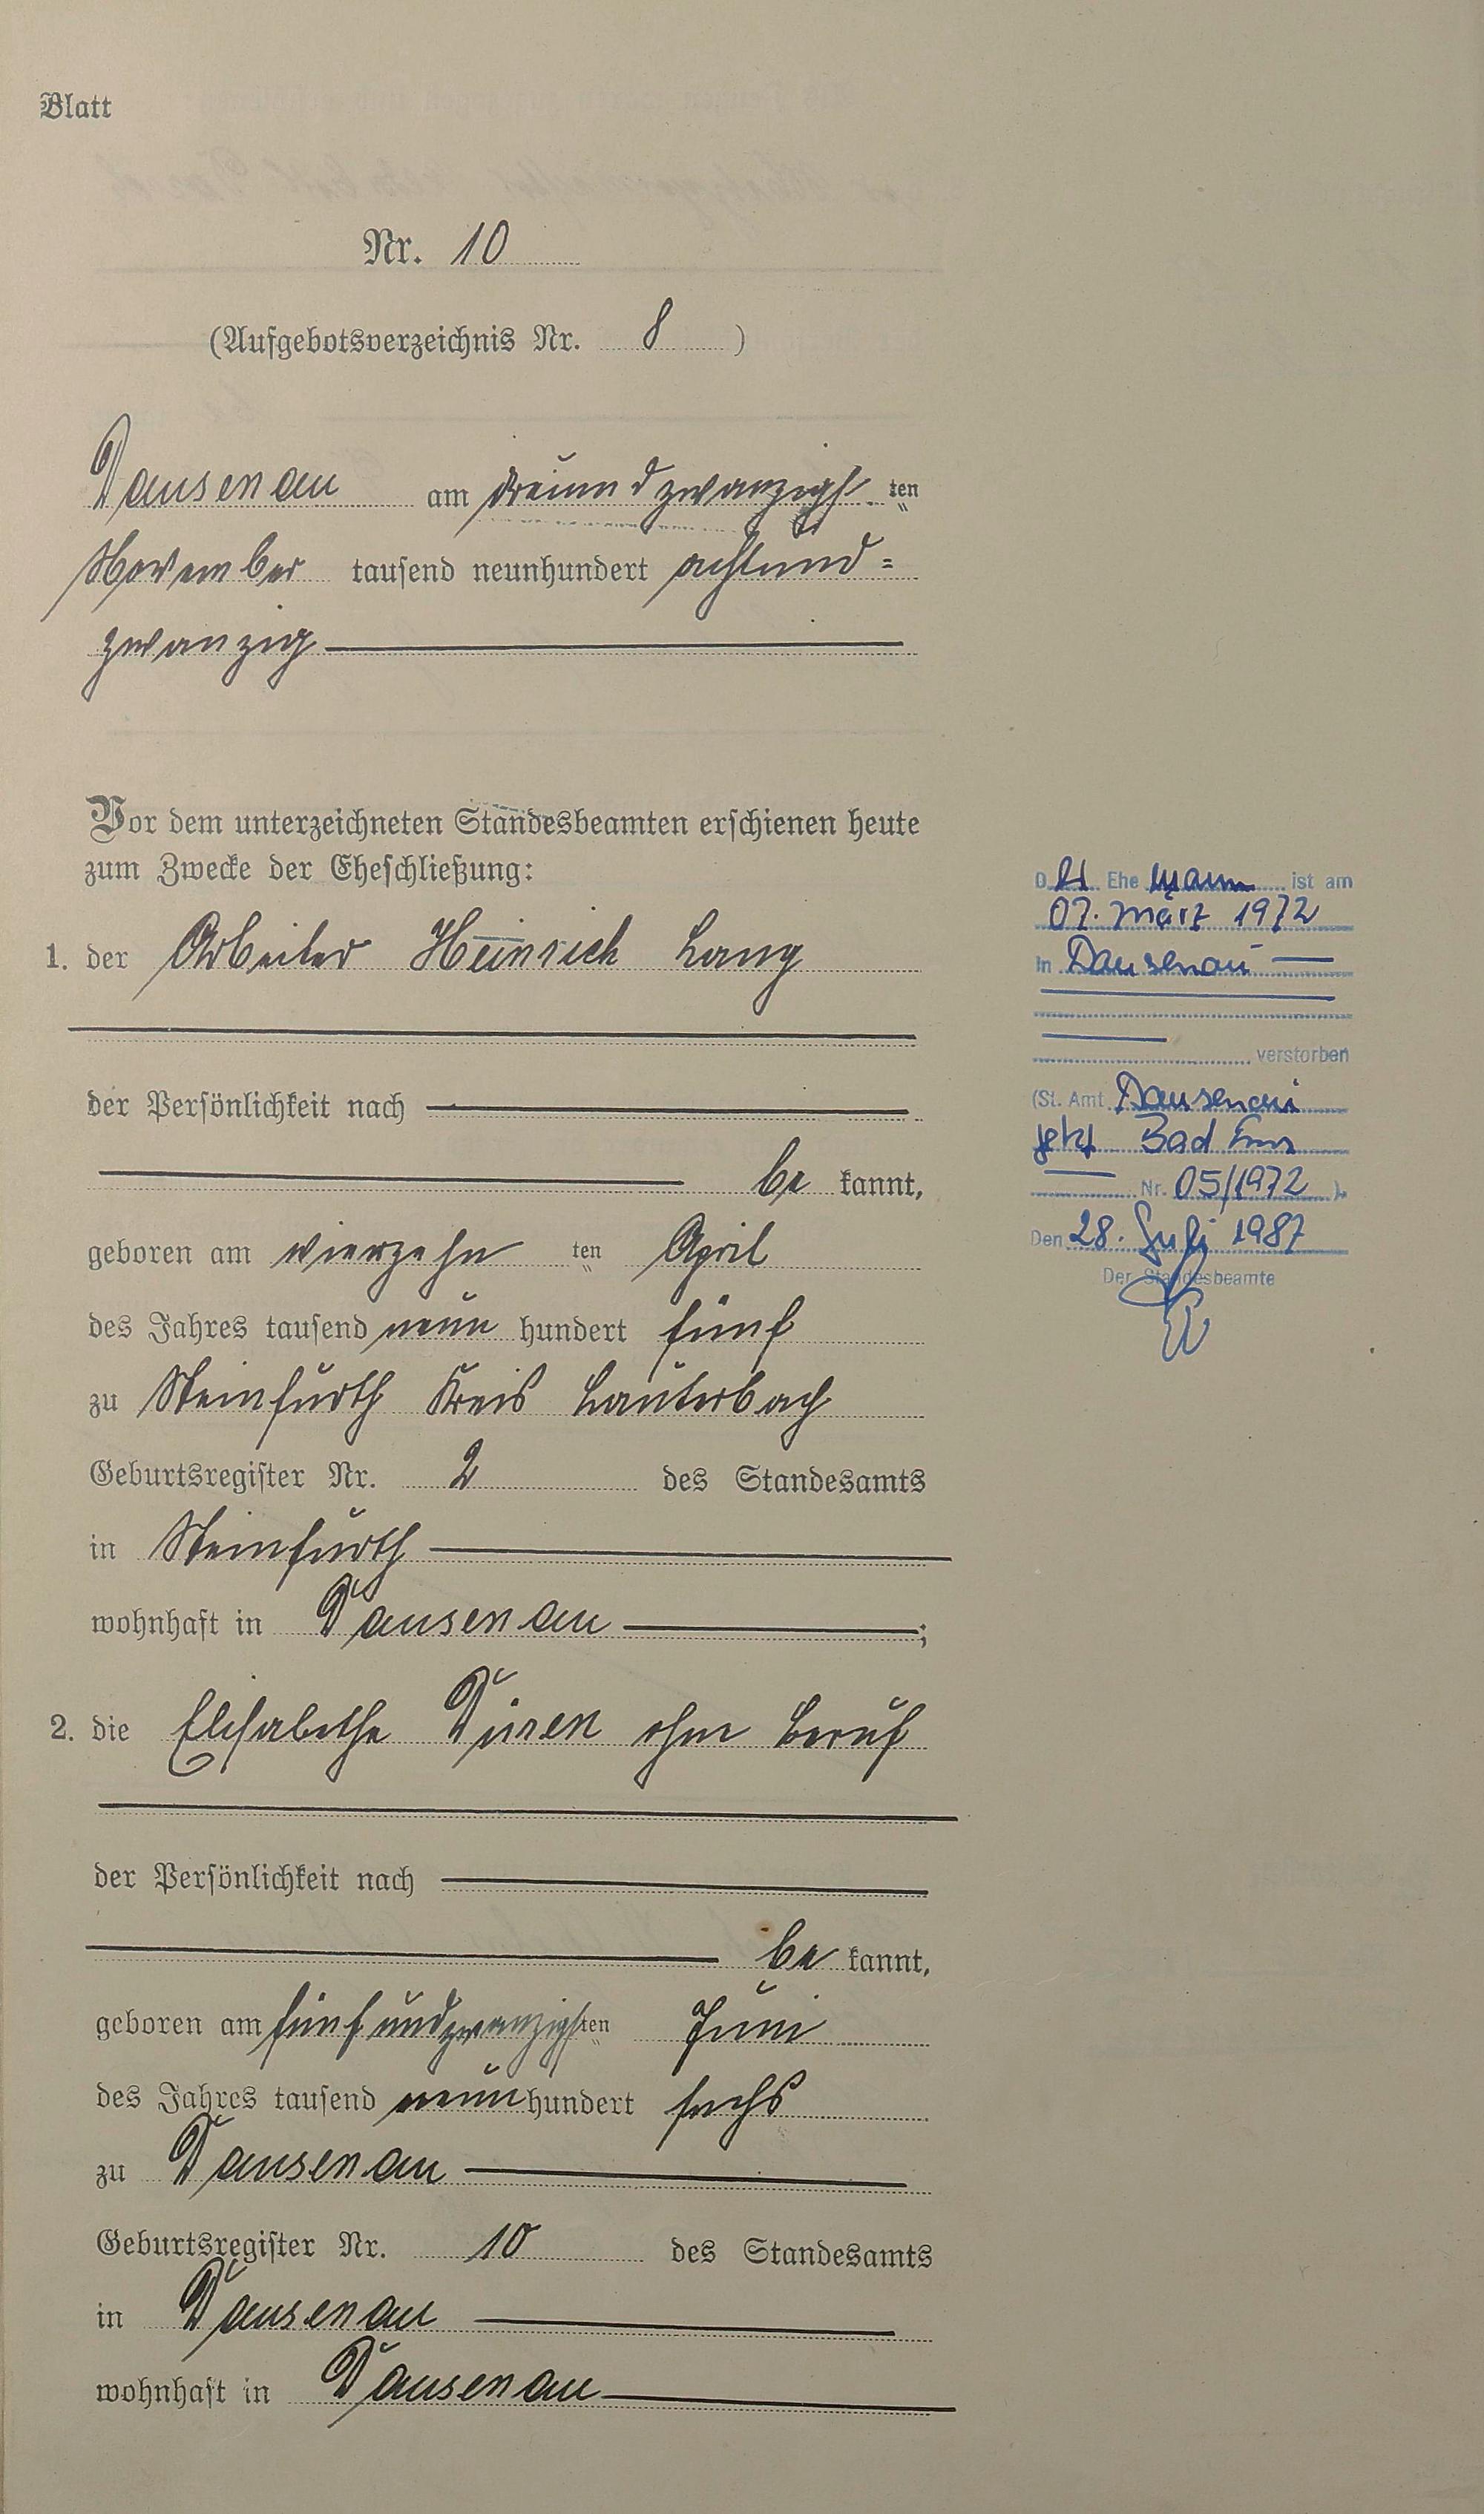 Blatt
Nr. 10
(Aufgebotsverzeichnis Nr. 8 )
Dausenau am dreiundzwanzigsten
November tausend neunhundert achtund=
zwanzig
Vor dem unterzeichneten Standesbeamten erschienen heute
zum Zwecke der Eheschließung:
1. der Arbeiter Heinrich Lang
der Persönlichkeit nach
be kannt,
geboren am vierzehn ten April
des Jahres tausend neun hundert fünf
zu Steinfurth Kreis Lauterbach
Geburtsregister Nr. 2 des Standesamts
in Steinfurth
wohnhaft in Dausenau ;
2. die Elisabethe Düren ohne Beruf
der Persönlichkeit nach
be kannt,
geboren am fünfundzwanzigsten Juni
des Jahres tausend neun hundert sechs
zu Dausenau
Geburtsregister Nr. 10 des Standesamts
in Dausenau
wohnhaft in Dausenau
D er Ehe mann ist am
07. März 1972
in Dausenau
verstorben
(St. Amt Dausenau
jetzt Bad Ems
Nr. 05/1972 ).
Den 28. Juli 1987
Der Standesbeamte